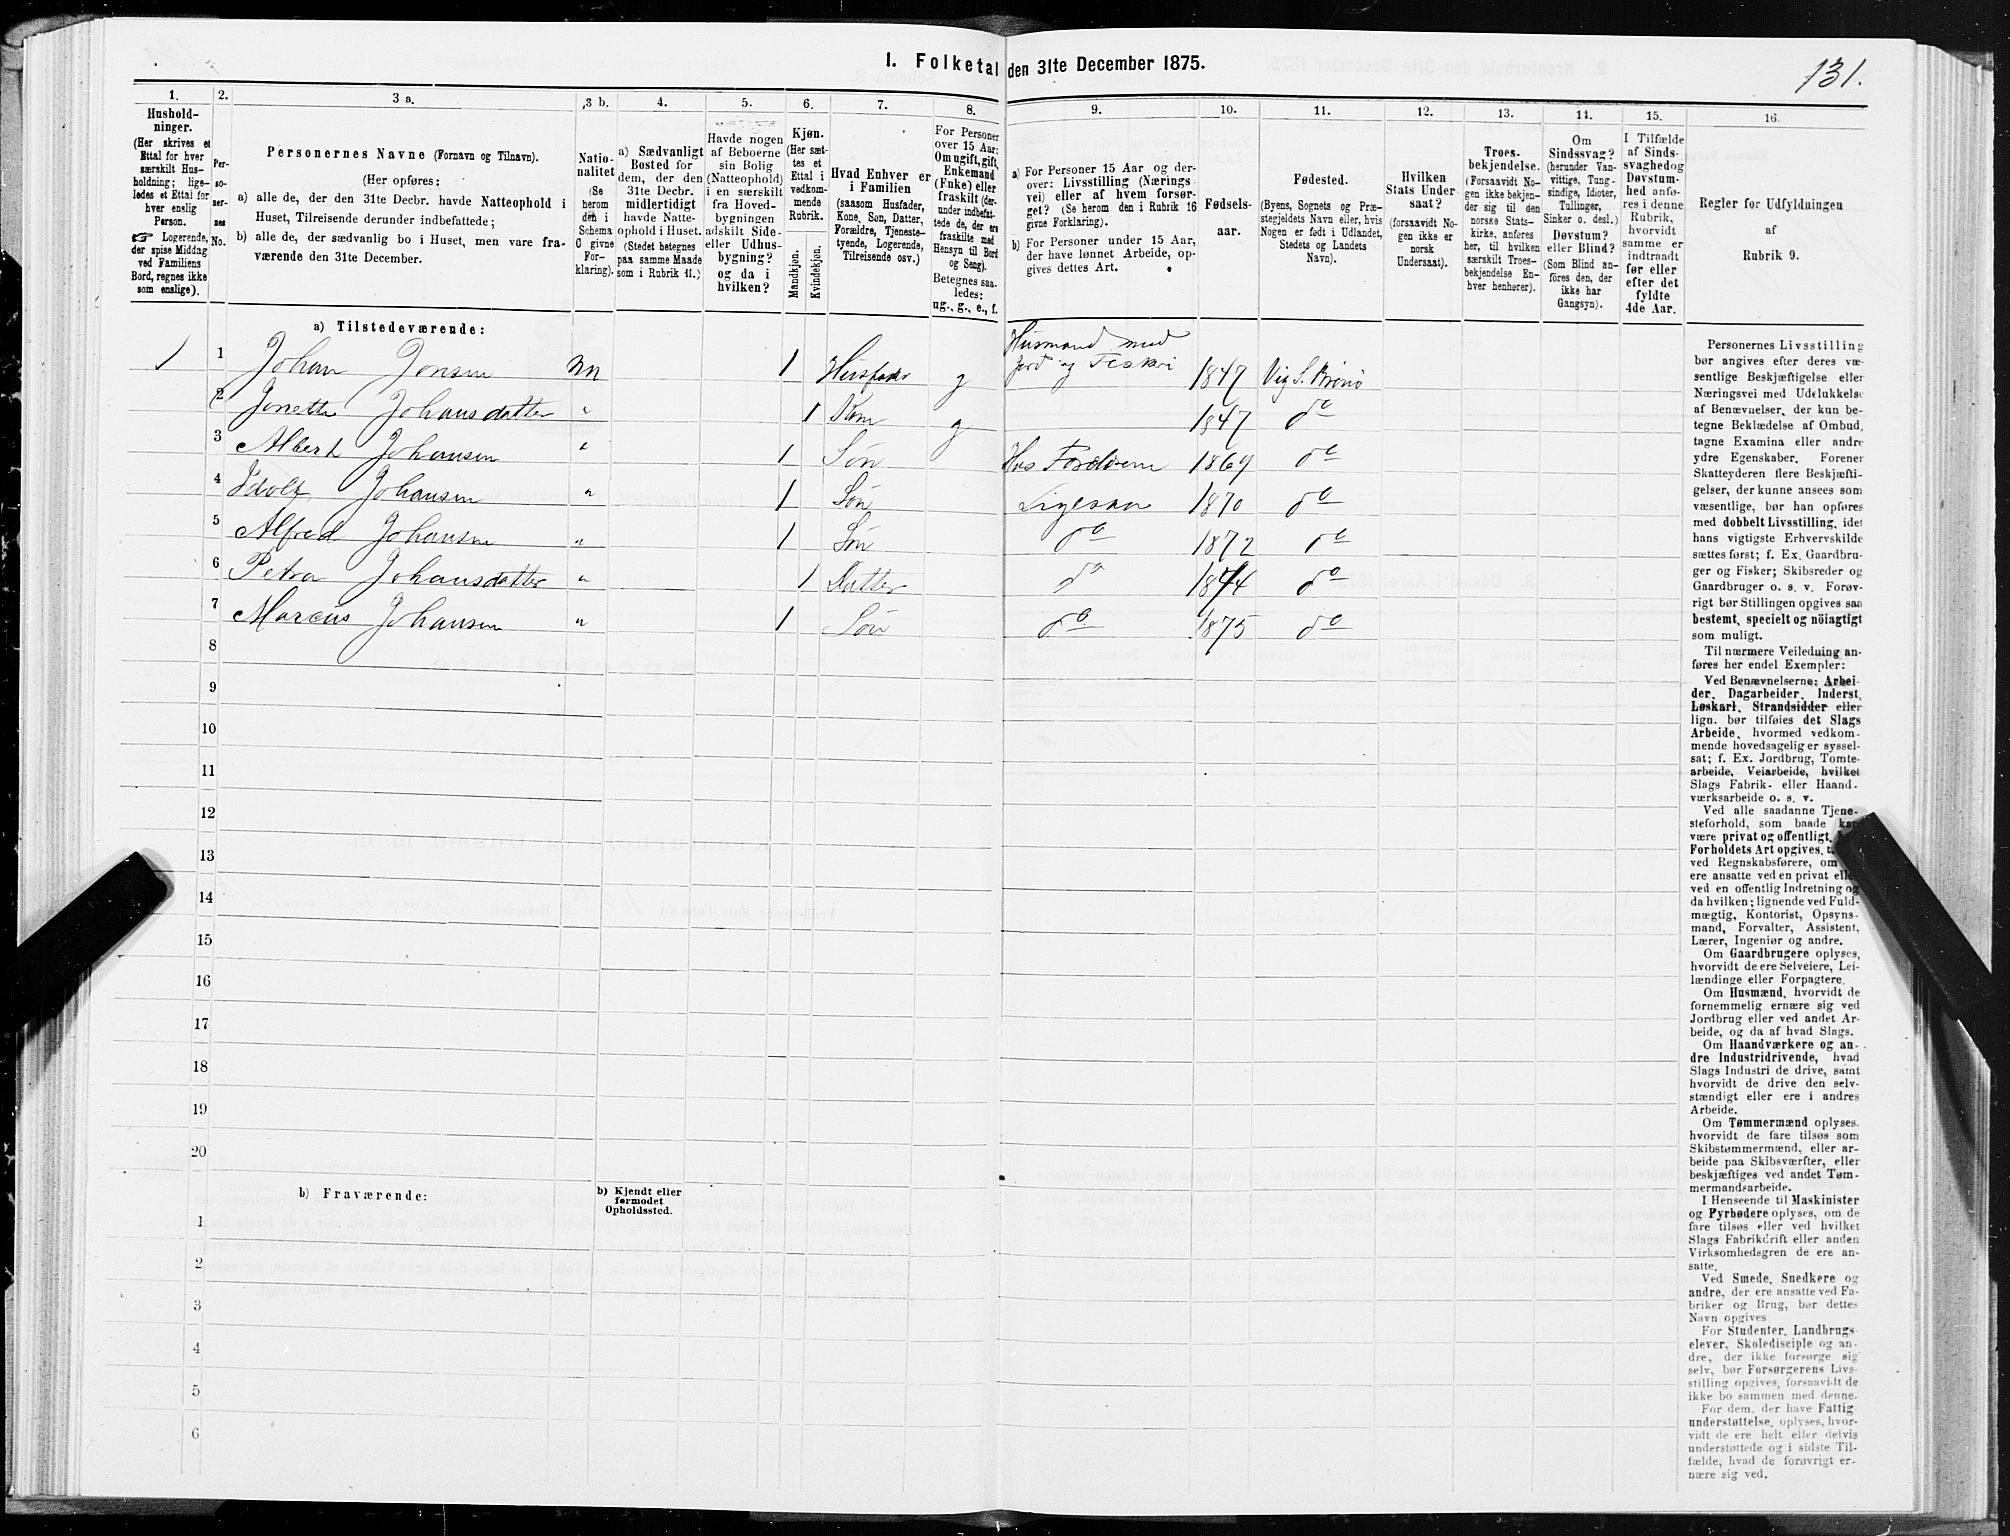 I. Folketal den 31te December 1875.
131.
1. 2. 3 a. 3 b. 4. 5. 6. 7. 8. 9. 10. 11. 12. 13. 14. 15. 16.
Hushold-
ninger.
(Her skrives et
Ettal for hver
særskilt Hus-
holdning; lige-
ledes et Ettal for
hver enslig
Person.
☞ Logerende,
der spise Middag
ved Familiens
Bord, regnes ikke
som enslige).
Per-
so-
ner-
nes
No.
Personernes Navne (Fornavn og Tilnavn).
(Her opføres:
a) alle de, der den 31te Decbr. havde Natteophold i
Huset, Tilreisende derunder indbefattede;
b) alle de, der sædvanlig bo i Huset, men vare fra-
værende den 31te December.
Natio-
nalitet
(Se
herom
den i
Schema
C givne
For-
klaring).
a) Sædvanligt
Bosted for
dem, der den
31te Decbr.
midlertidigt
havde Natte-
ophold i Huset.
(Stedet betegnes
paa samme Maade
som i Rubrik 11.)
Havde nogen
af Beboerne
sin Bolig
(Natteophold)
i en særskilt
fra Hoved-
bygningen
adskilt Side-
eller Udhus-
bygning?
og da i
hvilken?
Kjøn.
(Her sæt-
tes et
Ettal i
vedkom-
mende
Rubrik.
Mandkjøn.
Kvindekjøn.
Hvad Enhver er
i Familien
(saasom Husfader,
Kone, Søn, Datter,
Forældre, Tjeneste-
tyende, Logerende,
Tilreisende osv.)
For Personer
over 15 Aar:
Om ugift, gift,
Enkemand
(Enke) eller
fraskilt (der-
under indbefat-
tede de, der ere
fraskilte med
Hensyn til Bord
og Seng).
Betegnes saa-
ledes:
ug., g., e., f.
a) For Personer 15 Aar og der-
over: Livsstilling (Nærings
vei) eller af hvem forsør-
get? (Se herom den i Rubrik 16
givne Forklaring).
b) For Personer under 15 Aar,
der have lønnet Arbeide, op-
gives dettes Art.
Fødsels-
aar.
Fødested.
(Byens, Sognets og Præ-
stegjeldets Navn eller, hvis
Nogen er født i Udlandet,
Stedets og Landets
Navn).
Hvilken
Stats Under
saat?
(forsaavidt No-
gen ikke er
norsk
Undersaat).
Troes-
bekjendelse.
(Forsaavidt No-
gen ikke bekjen-
der sig til den
norske Stats-
kirke, anføres
her, til hvilken
særskilt Troes-
bekjendelse En-
hver henhører).
Om
Sindssvag?
(herunder Van-
vittige, Tung-
sindige, Idioter,
Tullinger,
Sinker o. desl.)
Døvstum?
eller Blind?
(Som Blind an-
føres den, der
ikke har
Gangsyn).
I Tilfælde
af Sinds-
svaghed og
Døvstum-
hed anfø-
res i denne
Rubrik,
hvorvidt
samme er
indtraadt
før eller
efter det
fyldte
4de Aar.
Regler for Udfyldningen
af
Rubrik 9.
a) Tilstedeværende:
Husmand med
1 1 Johan Jonsen Nn 1 Husfader g Jord og Fiskeri 1847 Vig S. Brønø
2 Jonette Johansdatter " 1 Kone g 1847 do
3 Albert Johansen " 1 Søn Hos Forældrene 1869 do
4 Idolf Johansen " 1 Søn Ligesaa 1870 do
5 Alfred Johansen " 1 Søn do 1872 do
6 Petra Johansdatter " 1 Datter do 1874 do
7 Marcus Johansen " 1 Søn do 1875 do
8
9
10
11
12
13
14
15
16
17
18
19
20
b) Fraværende:
b) Kjendt eller
formodet
Opholdssted.
1
2
3
4
5
6
Personernes Livsstilling
bør angives efter deres væ-
sentlige Beskjæftigelse eller
Næringsvei med Udelukkelse
af Benævnelser, der kun be-
tegne Beklædelse af Ombud,
tagne Examina eller andre
ydre Egenskaber. Forener
Skatteyderen flere Beskjæfti-
gelser, der kunne ansees som
væsentlige, bør han opføres
med dobbelt Livsstilling, idet
hans vigtigste Erhvervskilde
sættes først; f. Ex. Gaardbru-
ger og Fisker; Skibsreder og
Gaardbruger o. s. v. Forøv-
rigt bør Stillingen opgives saa
bestemt, specielt og nöiagtigt
som muligt.
Til nærmere Veiledning an-
føres her endel Exempler:
Ved Benævnelserne: Arbei-
der, Dagarbeider, Inderst,
Løskarl, Strandsidder eller
lign. bør tilføies det Slags
Arbeide, hvormed vedkom-
mende hovedsagelig er syssel-
sat; f. Ex. Jordbrug, Tomte-
arbeide, Veiarbeide, hvilket
Slags Fabrik- eller Haand-
værksarbeide o. s. v.
Ved alle saadanne Tjene-
steforhold, som baade kan
være privat og offentligt,
Forholdets Art opgives,
ved Regnskabsførere, om
ere ansatte ved en privat eller
ved en offentlig Indretning og
da hvilken; lignende ved Fuld-
mægtig, Kontorist, Opsyns-
mand, Forvalter, Assistent,
Lærer, Ingeniør og andre.
Om Gaardbrugere oplyses,
hvorvidt de ere Selveiere, Lei-
lændinge eller Forpagtere.
Om Husmænd, hvorvidt de
fornemmelig ernære sig ved
Jordbrug eller ved andet Ar-
beide, og da af hvad Slags.
Om Haandværkere og an-
dre Industridrivende, hvad
Slags Industri de drive, samt
hvorvidt de drive den selv-
stændigt eller ere i andres
Arbeide.
Om Tømmermænd oplyses,
hvorvidt de fare tilsøs som
Skibstømmermænd, eller ar-
beide paa Skibsværfter, eller
beskjæftiges ved andet Tøm-
mermandsarbeide.
I Henseende til Maskinister
og Fyrbødere oplyses, om de
fare tilsøs eller ved hvilket
Slags Fabrikdrift eller anden
Virksomhedsgren de ere an-
satte.
Ved Smede, Snedkere og
andre, der ere ansatte ved Fa-
briker og Brug, bør dettes
Navn opgives
For Studenter, Landbrugs-
elever, Skoledisciple og an-
dre, der ikke forsørge sig
selv, bør Forsørgerens Livs-
stilling opgives, forsaavidt de
ikke bo sammen med denne.
For dem, der have Fattig
understøttelse, oplyses, hvor-
vidt de ere helt eller delvis
understøttede og i sidste Til-
fælde, hvad de forøvrigt er-
nære sig ved.